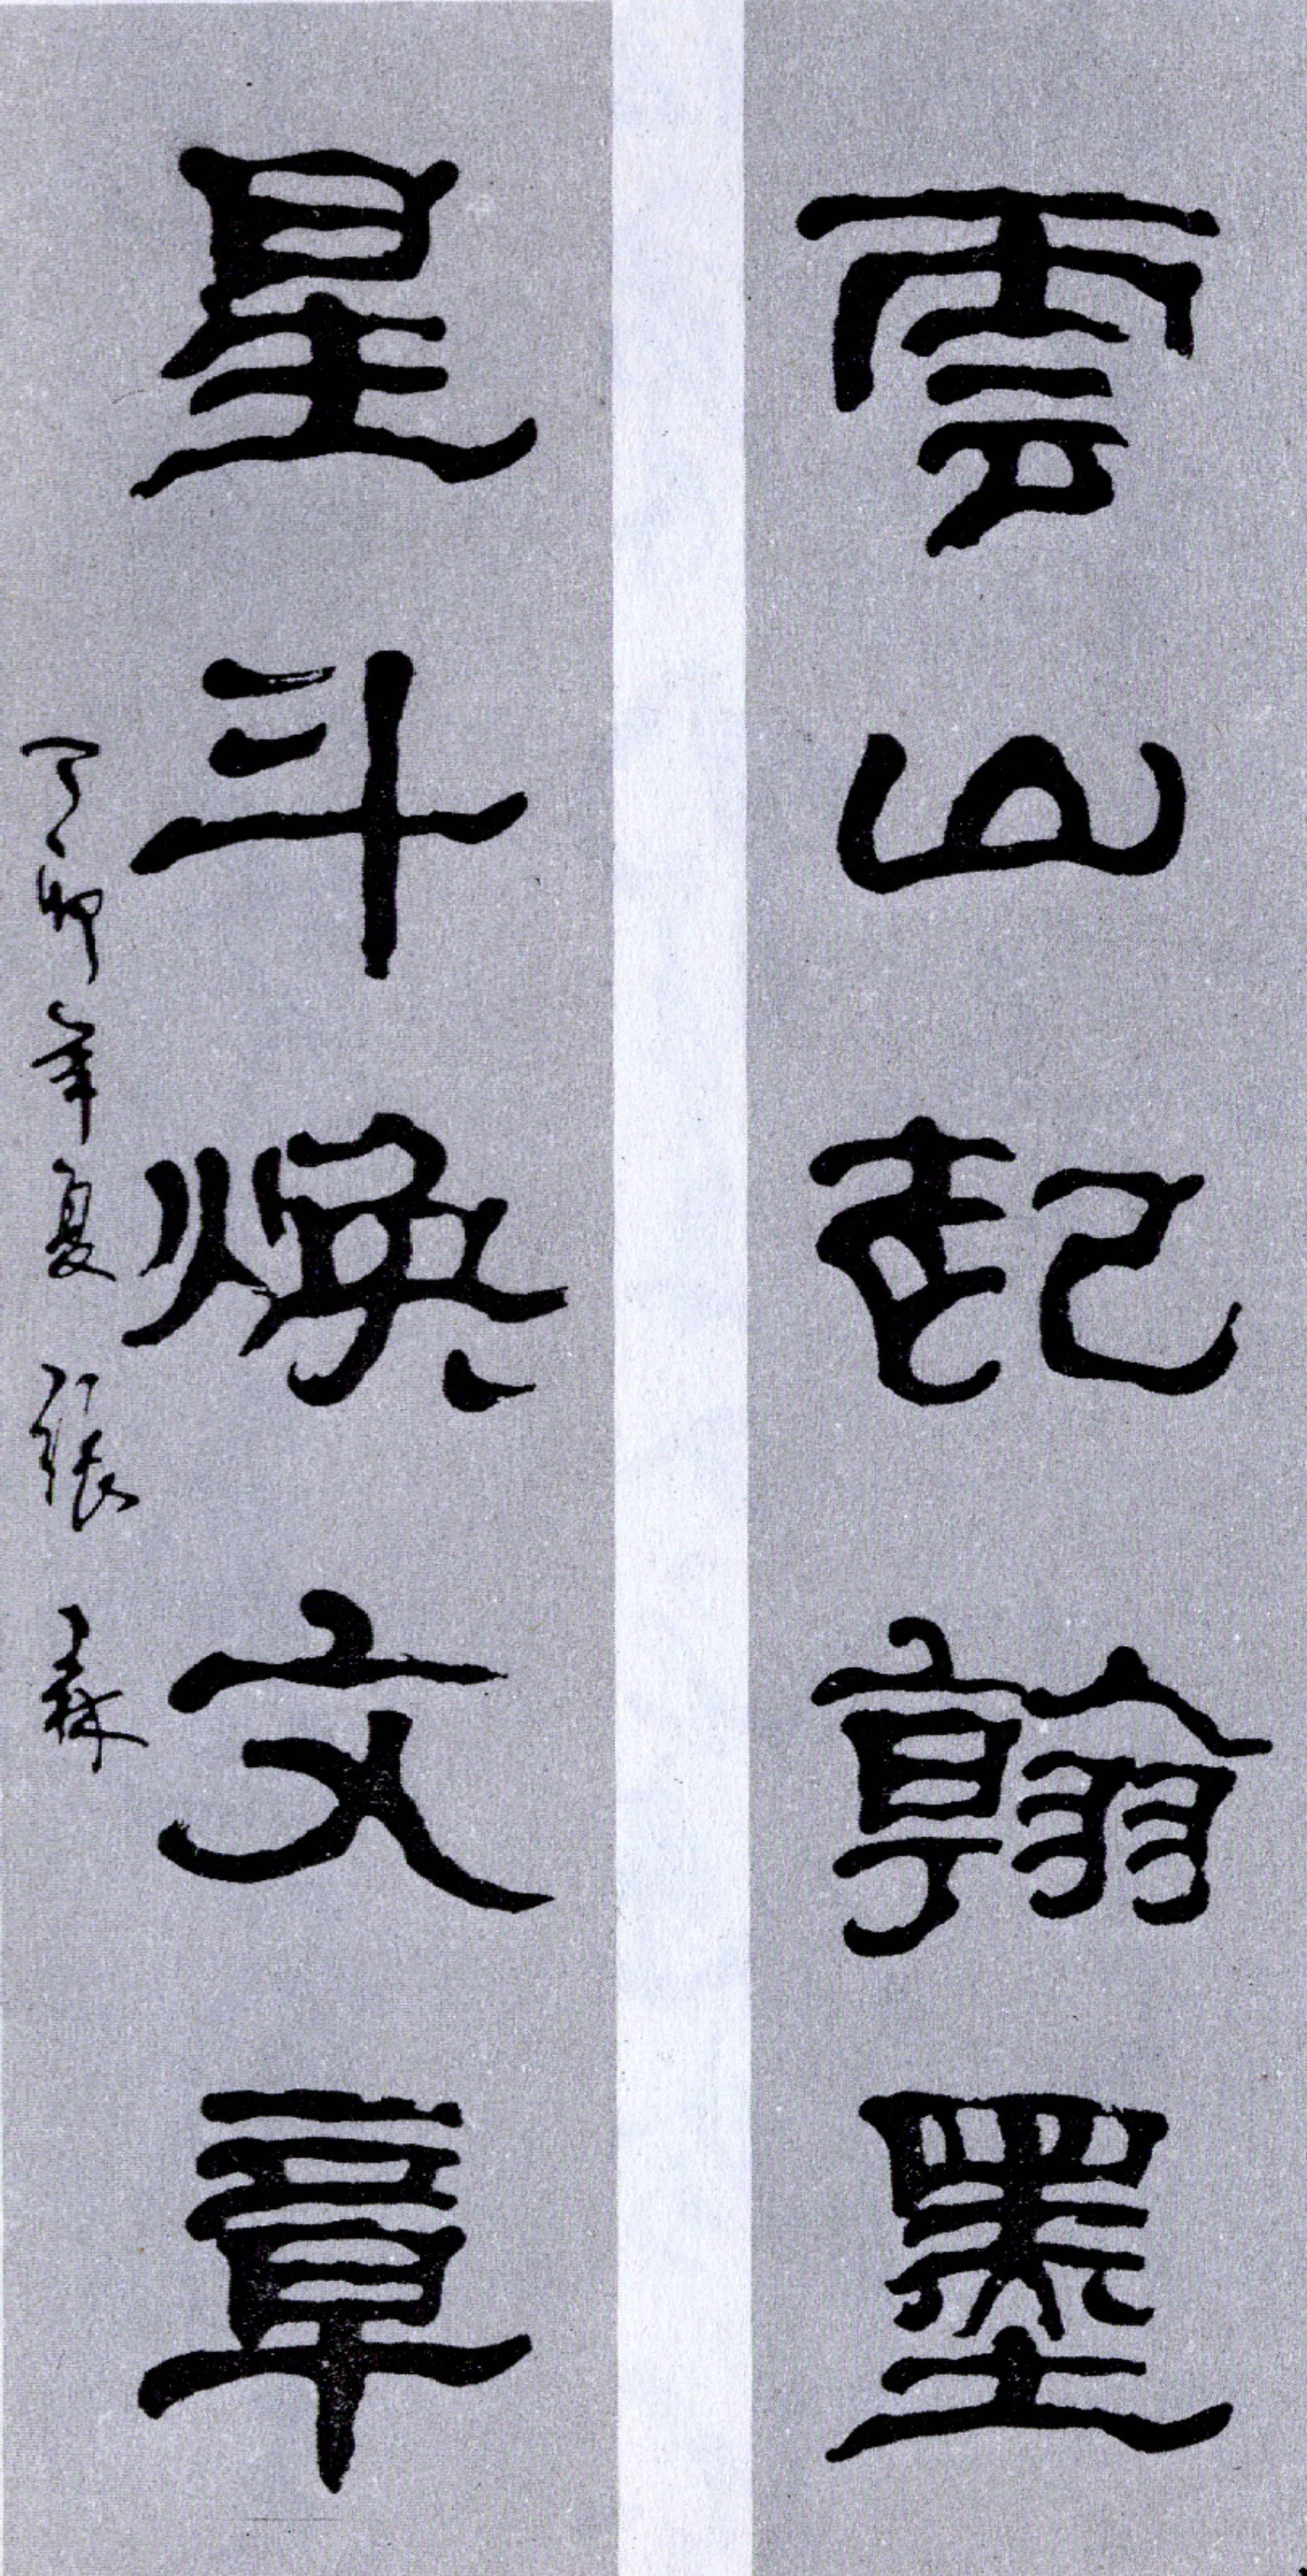 雲山起翰墨
星斗煥文章
丁卯年夏 張森